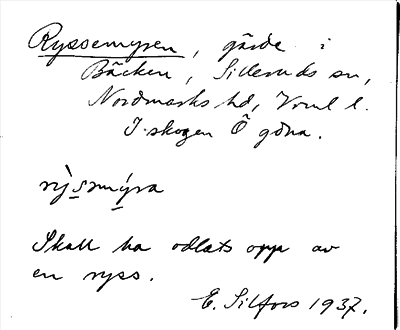 Ryssemyren, gärde i
Bäcken, Silleruds sn,
Nordmarks hd, Vrml l.
I skogen Ö gdna.
rỳsmýra
Skall ha odlats opp av
en ryss.
E. Silfors 1937.